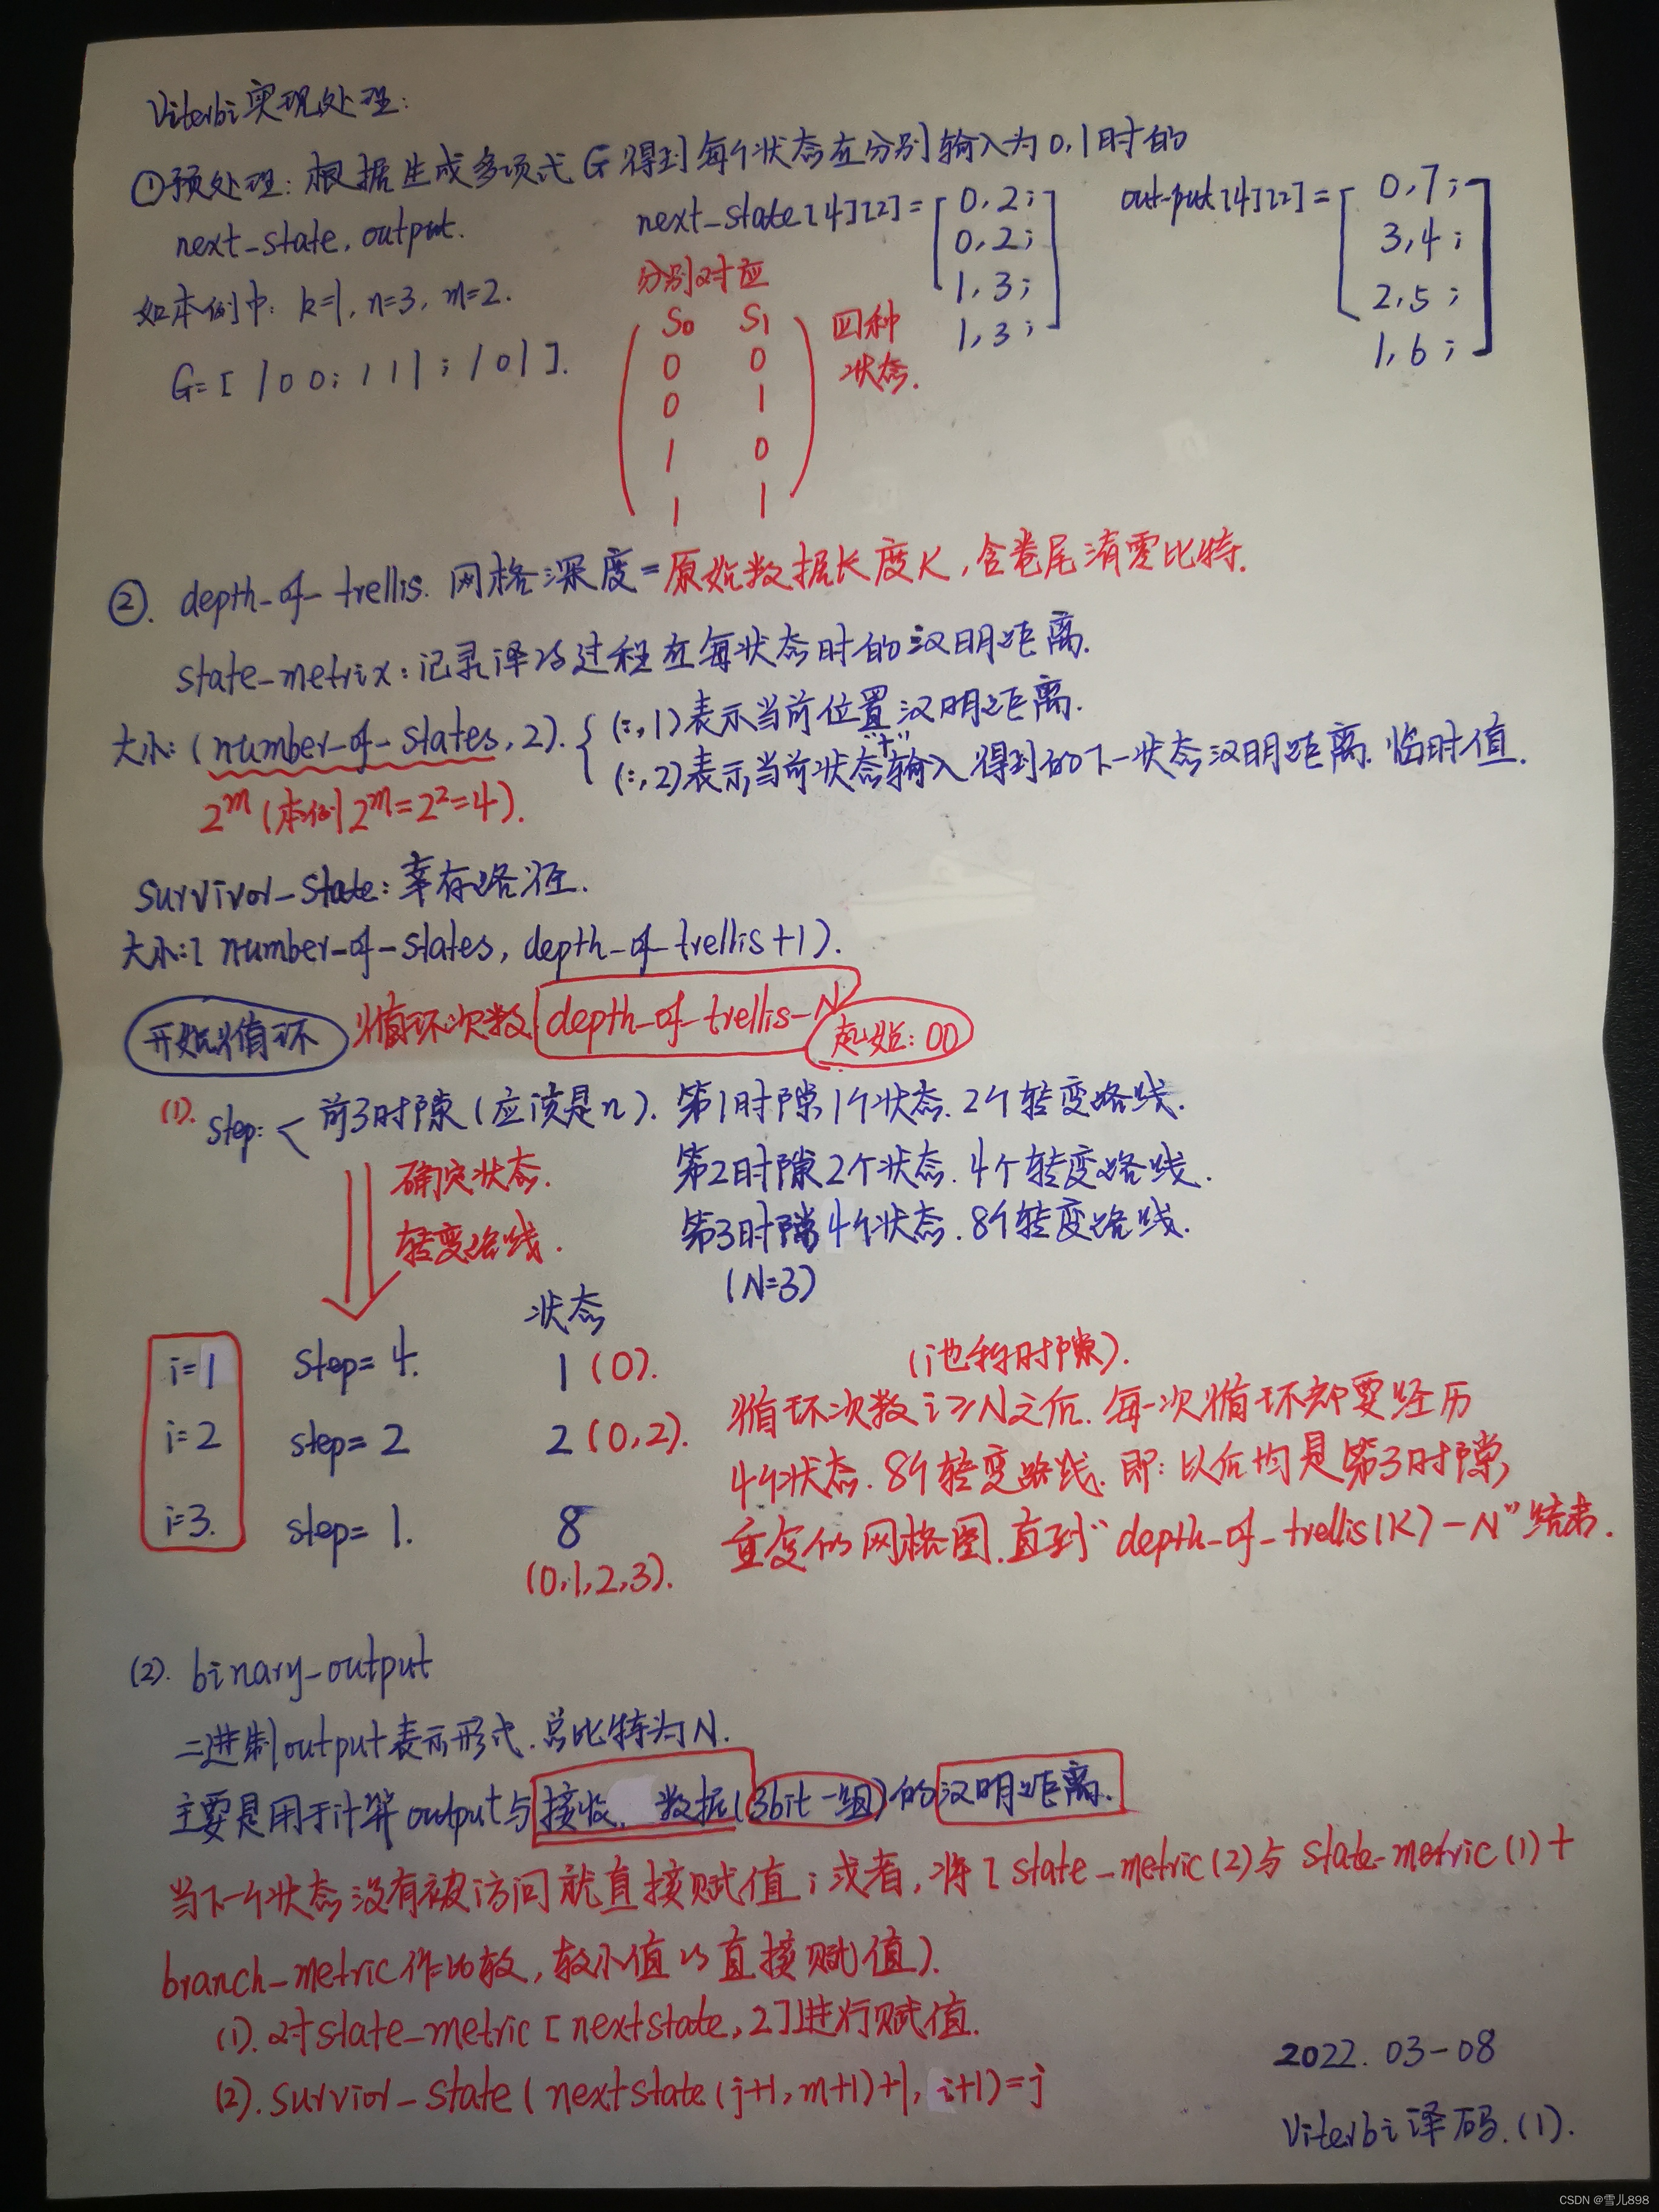 Viterbi实现处理:
①预处理: 根据生成多项式 G 得到每个状态在分别输入为0,1时的
next_state, output.
next_state[4][2]=[0,2;
0,2;
1,3;
1,3;]
output[4][2]=[0,7;
3,4;
2,5;
1,6;]
如本例中: k=1, n=3, m=2.
G=[100; 111; 101].
分别对应
S0 S1
0 0
0 1
1 0
1 1
四种
状态.
②. depth_of_trellis. 网格深度=原始数据长度K,含卷尾清零比特.
state_metrix: 记录译码过程在每状态时的汉明距离.
大小: (number_of_states, 2). { (:,1)表示当前位置汉明距离.
(:,2)表示当前状态"+"输入得到的下一状态汉明距离. 临时值.
2^m (本例2^m=2^2=4).
Survivor_State: 幸存路径.
大小:[number_of_states, depth_of_trellis+1).
开始循环 循环次数 depth_of_trellis-N 起始: 00
(1). Step: < 前3时隙(应该是n). 第1时隙1个状态. 2个转变路线.
第2时隙2个状态. 4个转变路线.
第3时隙4个状态. 8个转变路线.
(N=3)
确定状态.
转变路线.
状态
i=1 Step=4. 1 (0).
i=2 step=2 2 (0,2).
i=3. step=1. 8
(0,1,2,3).
(i也称时隙).
循环次数i≥N之后. 每一次循环都要经历
4个状态. 8个转变路线. 即: 以后均是第3时隙
重复的网格图. 直到"depth_of_trellis(K)-N"结束.
(2). binary_output
二进制output表示形式. 总比特为N.
主要是用于计算output与接收数据(3bit一组)的汉明距离.
当下一个状态没有被访问就直接赋值; 或者, 将[state_metric(2)与state_metric(1)+
branch_metric作比较, 较小值的直接赋值).
(1). 对state_metric[nextstate,2]进行赋值.
(2). Survior_State(nextstate(j+1,m+1)+1, i+1)=j
2022.03-08
Viterbi译码.(1).
CSDN @雪儿898